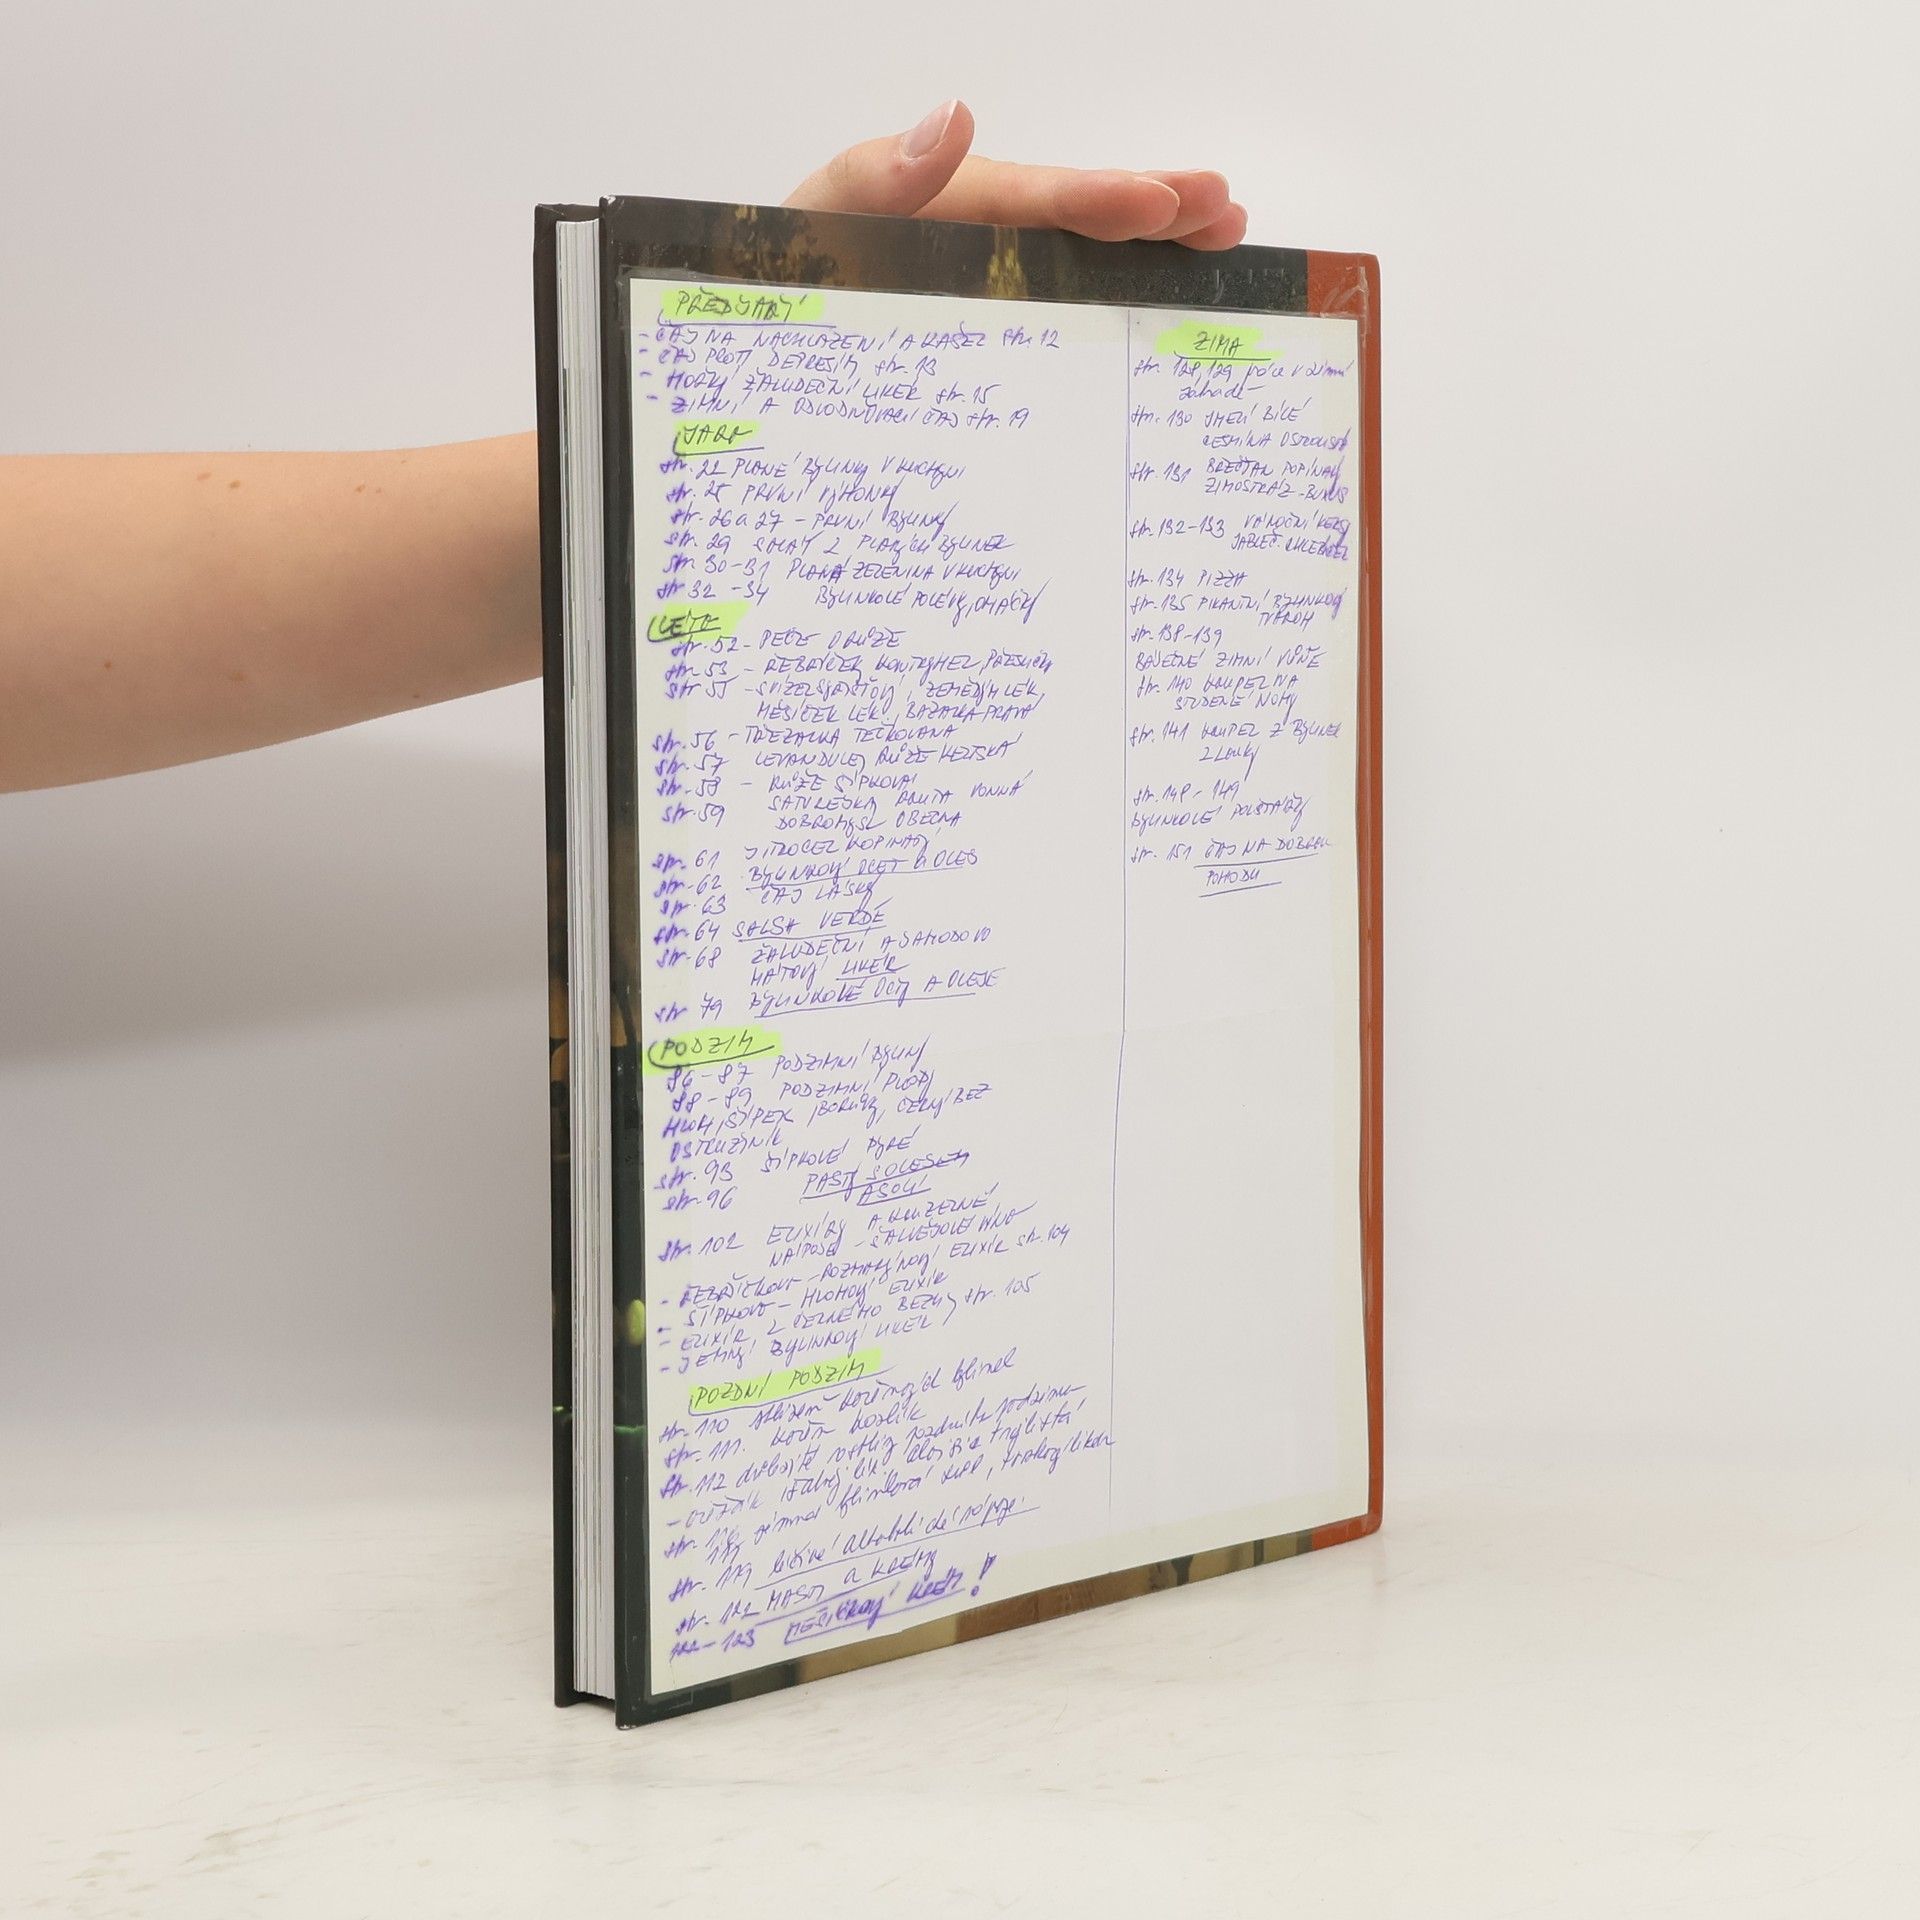 PŘEDJARÍ
- ČAJ NA NACHLAZENÍ A KAŠEL str. 12
- ČAJ PROTI DEPRESÍM str. 13
- HOŘKÝ ŽALUDEČNÍ LIKÉR str. 15
- ZIMNÍ A ČAJ str. 19
JARO
str. 22 PLANÉ BYLINKY V KUCHYNI
str. 25 PRVNÍ VÝHONKY
str. 26 a 27 - PRVNÍ BYLINKY
str. 29 SALÁT Z PLANÝCH BYLINEK
str. 30-31 PLANÁ ZELENINA V KUCHYNI
str 32 - 34 BYLINKOVÉ POLÉVKY, OMÁČKY
LÉTO
str. 52 - PÉČE O RŮŽE
str. 53 - ŘEBŘÍČEK KONTRYHEL, PŘESLIČKA
str 55 - SVÍZEL SYŘIŠŤOVÝ, ZEMĚDÝM LÉK,
MĚSÍČEK LÉK., BAZALKA PRAVÁ
str. 56 - TŘEZALKA TEČKOVANÁ
str. 57 LEVANDULE, RŮŽE KELTSKÁ
str. 58 - RŮŽE ŠÍPKOVÁ
str. 59 SATUREJKA, ROUTA VONNÁ
DOBROMYSL OBECNÁ
str. 61 JITROCEL KOPINATÝ
str. 62 BYLINKOVÝ OCET A OLEJ
str. 63 ČAJ LÁSKY
str. 64 SALSA VERDE
str. 68 ŽALUDEČNÍ A JAHODOVO
MÁTOVÝ LIKÉR
str 79 BYLINKOVÉ OCTY A OLEJE
PODZIM
86-87 PODZIMNÍ BYLINY
88-89 PODZIMNÍ PLODY
HLOH, ŠÍPEK, BORŮVKY, ČERNÝ BEZ
OSTRUŽINÍK
str. 93 ŠÍPKOVÉ PYRÉ
str. 96 PASTY S OLEJEM
A SOLÍ
str. 102 ELIXÍRY A KOUZELNÉ
NÁPOJE - ŠALVĚJOVÉ VÍNO
- ŘEBŘÍČKOVO - ROZMARÝNOVÝ ELIXÍR str. 104
- ŠÍPKOVO - HLOHOVÝ ELIXÍR
- ELIXÍR Z ČERNÉHO BEZU
- JEMNÝ BYLINKOVÝ LIKÉR str. 105
POZDNÍ PODZIM
str. 110 sklizeň kořenových bylinek
str. 111. kořen kozlík
str. 112 drobné rostliny pozdního podzimu
str. 116 zimní bylinková
117
str. 119 léčivé alkoholické nápoje
str. 122 MASTI A KRÉMY
122-123 MĚSÍČKOVÝ KRÉM!
ZIMA
str. 128, 129 práce v zimní
zahradě
str. 130 JMELÍ BÍLÉ
CESMÍNA OSTROLISTÁ
str. 131 BŘEČŤAN POPÍNAVÝ
ZIMOSTRÁZ - BUXUS
str. 132-133 VÁNOČNÍ KEKSY
JABLEČ. CHLEBÍČEK
str. 134 PIZZA
str. 135 PIKANTNÍ BYLINKOVÝ
TVAROH
str. 138-139
BÁJEČNÉ ZIMNÍ VŮNĚ
str. 140 KOUPEL NA
STUDENÉ NOHY
str. 141 KOUPEL Z BYLINEK
Z LOUKY
str. 148 - 149
BYLINKOVÉ POLŠTÁŘKY
str. 151 ČAJ NA DOBROU
POHODU